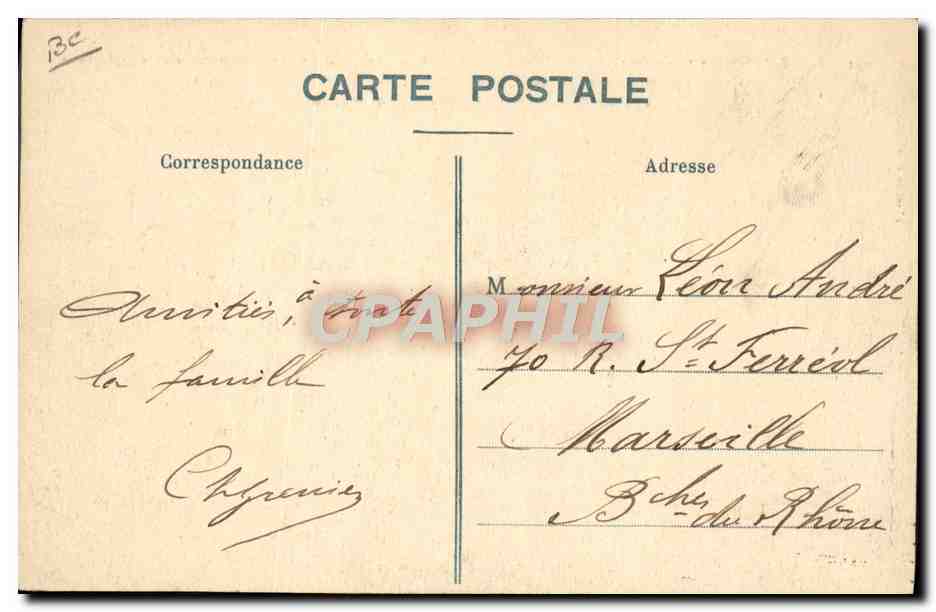 BC
CARTE POSTALE
Correspondance
Adresse
Amitiés, à toute
la famille
ChGrenier
Monsieur Léon André
70 R. St Ferréol
Marseille
Bches du Rhône
CPAPHIL